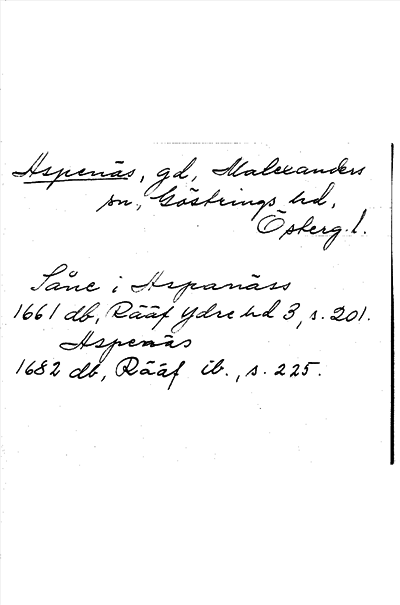 Aspenäs, gd, Malexanders
sn, Göstrings hd,
Österg. l.
Såne i Aspanäss
1661 db, Rääf Ydre hd 3, s. 201.
Aspenäs
1682 db, Rääf ib., s. 225.